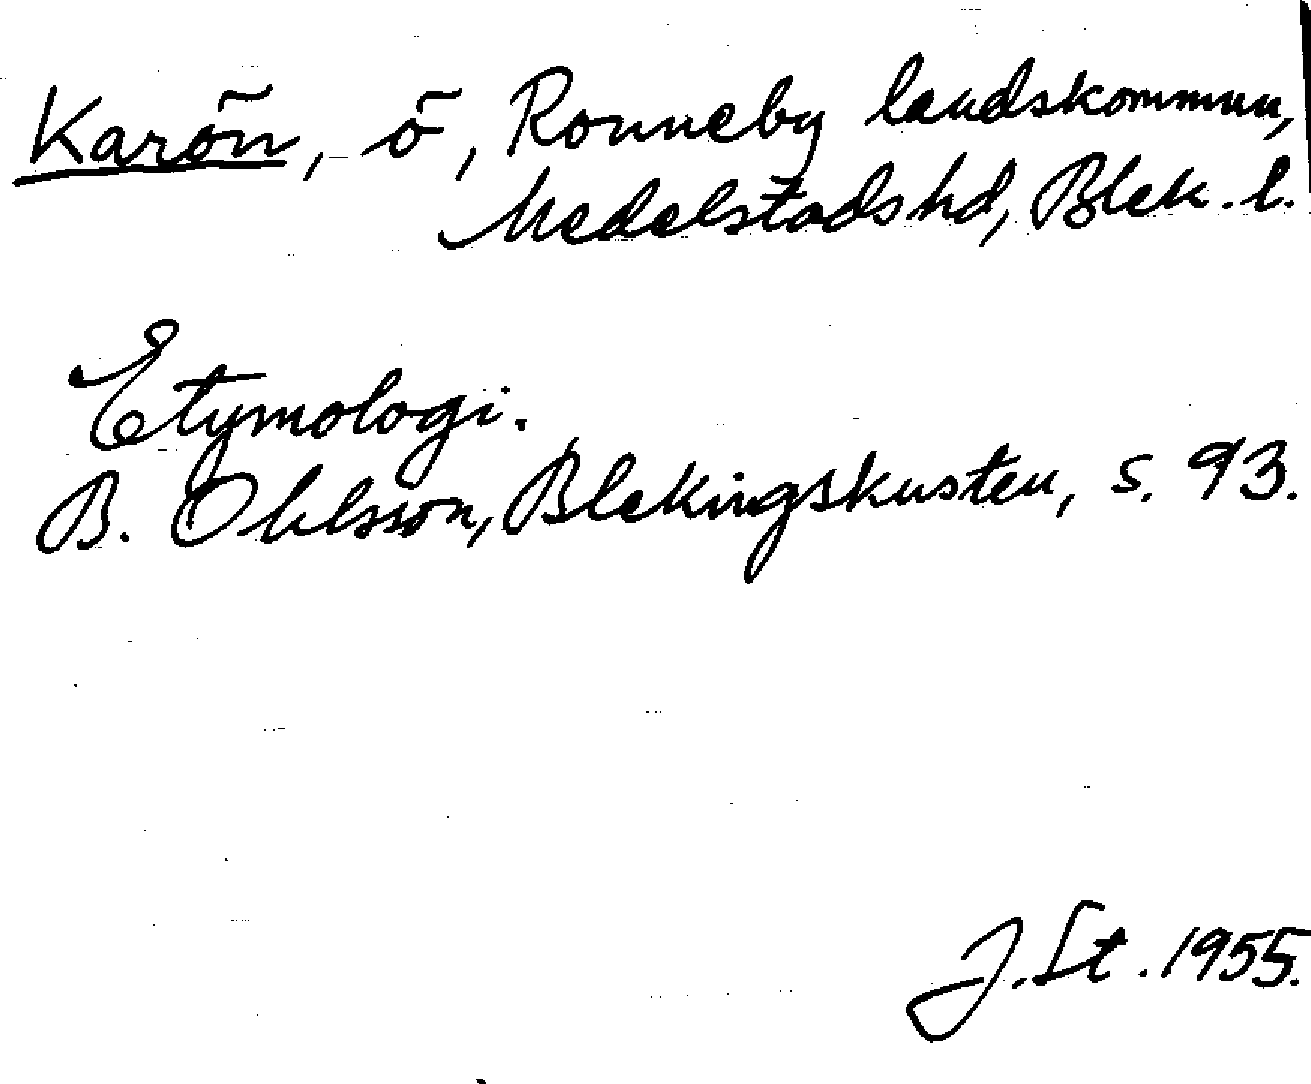 Karön, ö, Ronneby landskommun,
Medelstads hd, Blek. l.
Etymologi.
B. Ohlsson, Blekingskusten, s. 93.
J. St. 1955.